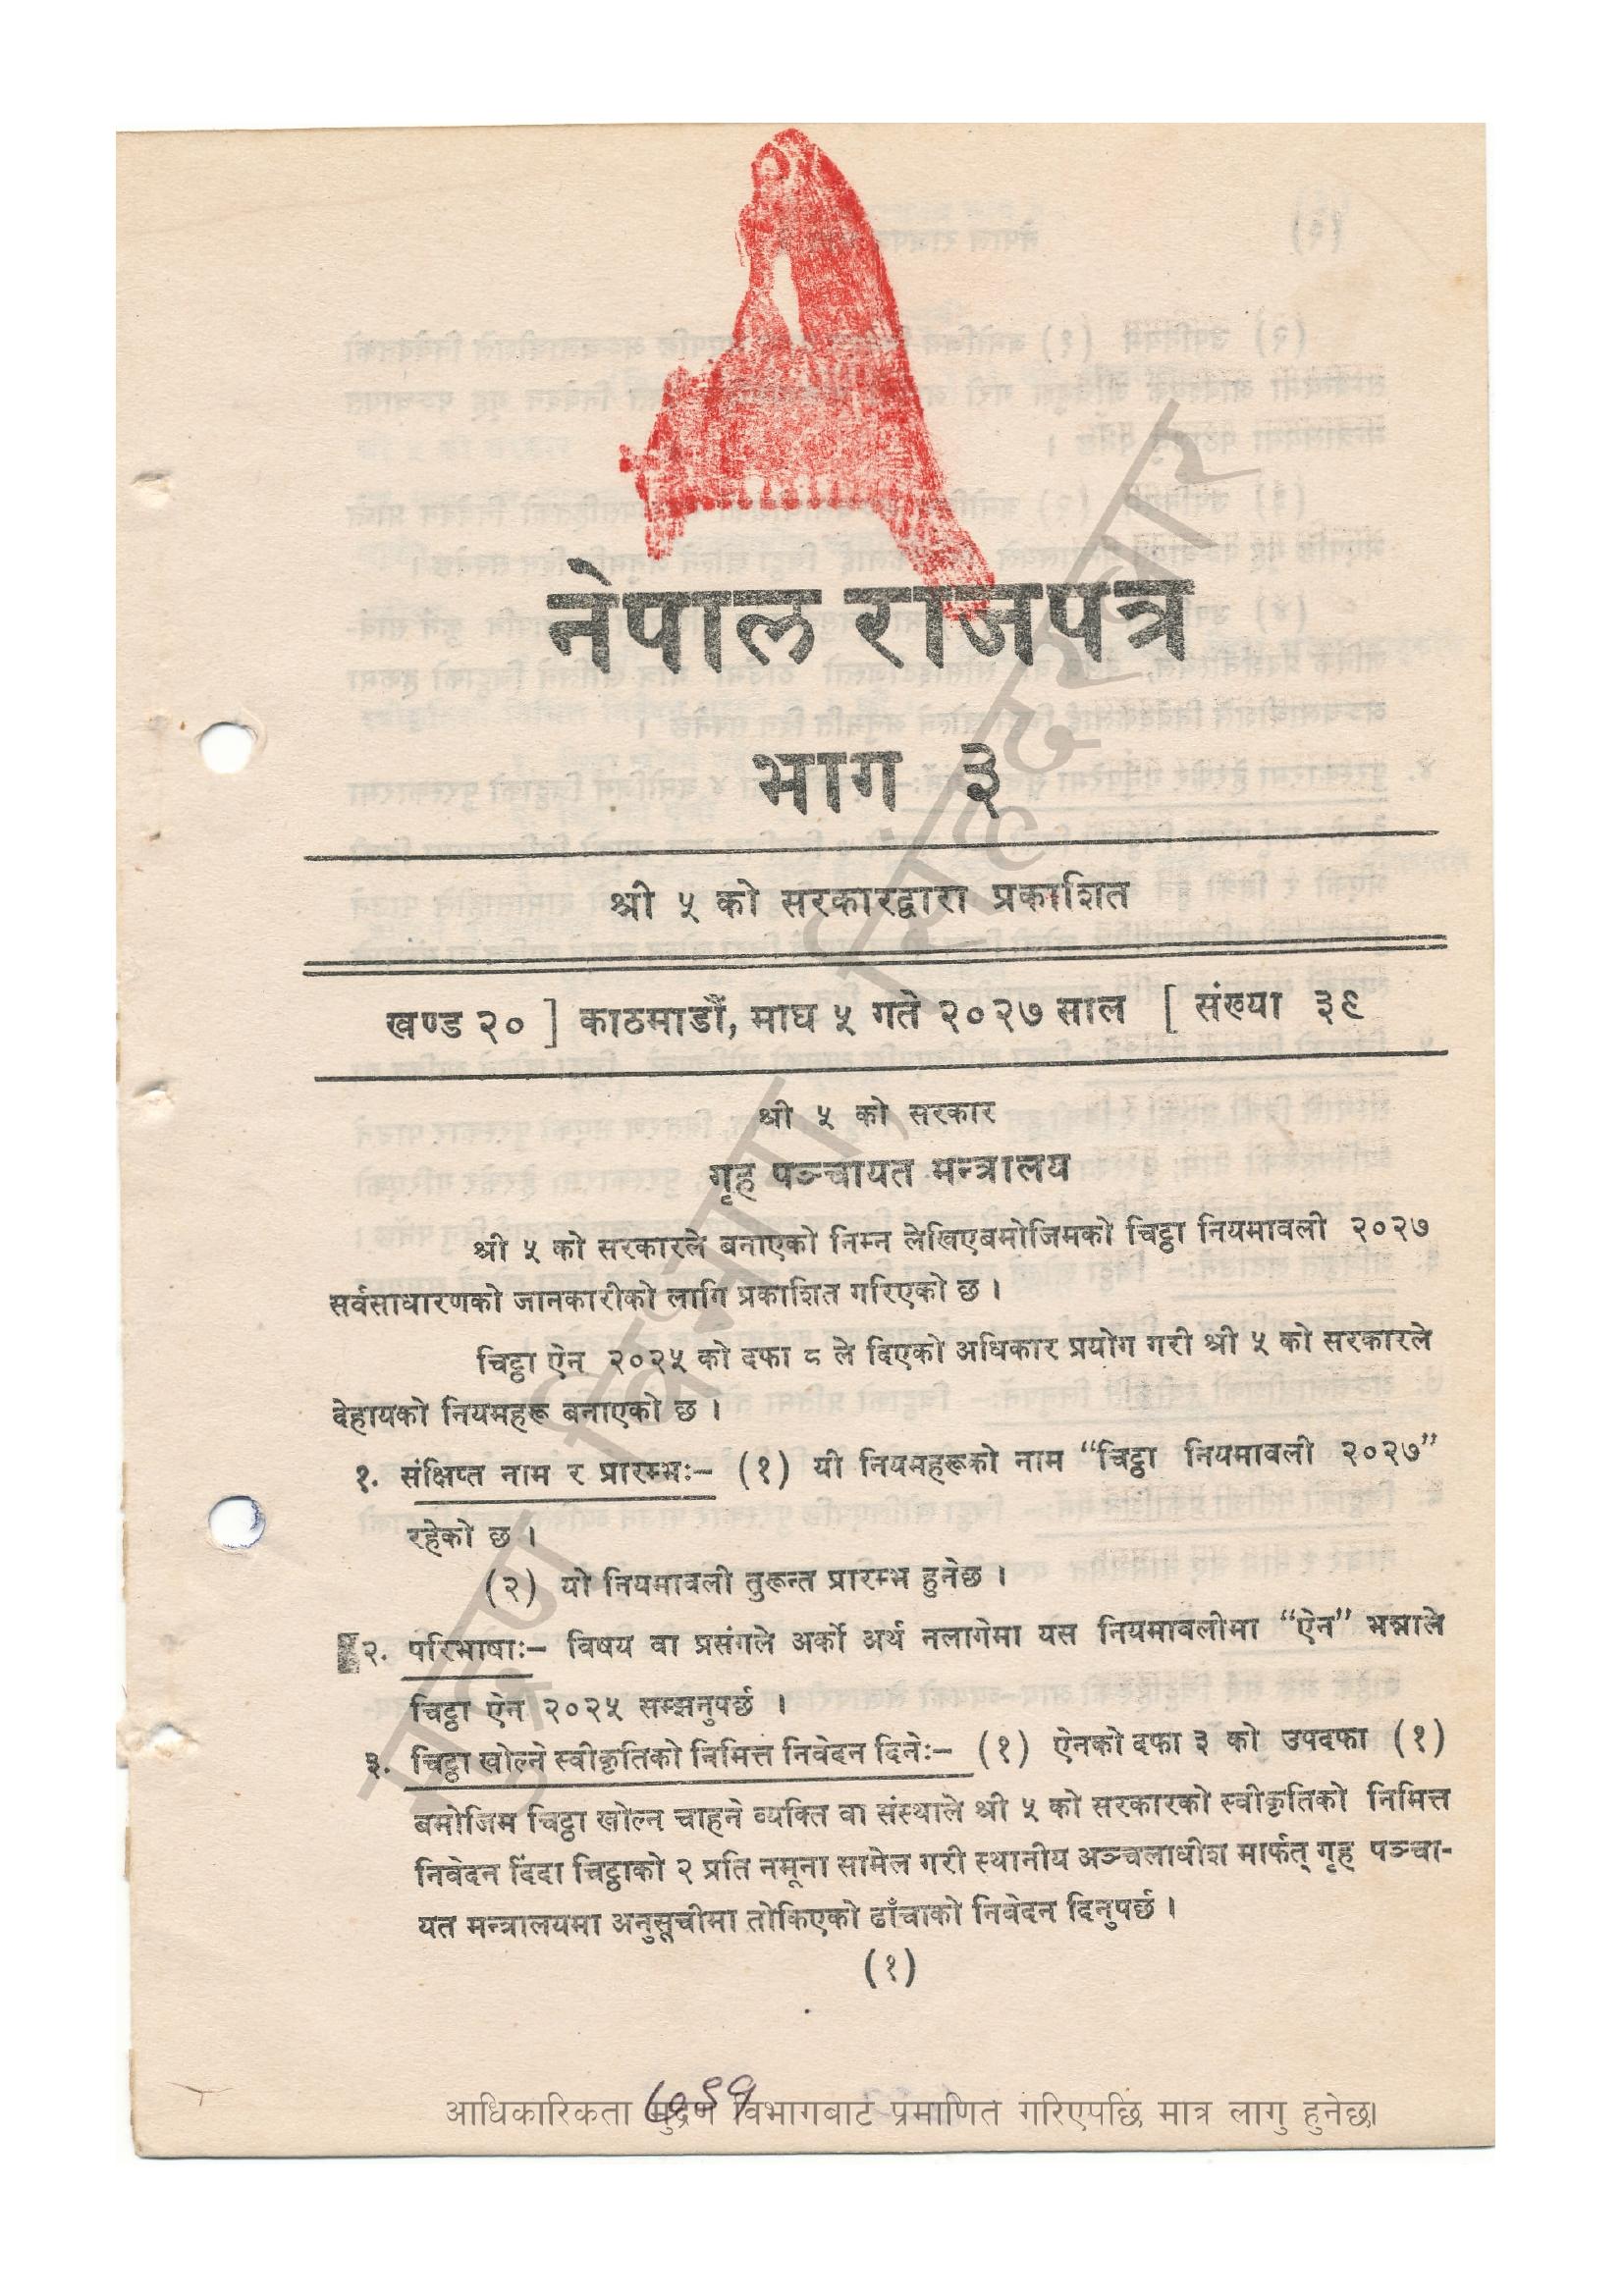 नेपाल राजपत्र
भाग ३
श्री ५ को सरकारद्वारा प्रकाशित
खण्ड २० ] काठमाडौँ, माघ ५ गते २०२७ साल [ संख्या ३९
श्री ५ को सरकार
गृह पञ्चायत मन्त्रालय
श्री ५ को सरकारले बनाएको निम्न लेखिएबमोजिमको चिट्ठा नियमावली २०२७
सर्वसाधारणको जानकारीको लागि प्रकाशित गरिएको छ ।
चिट्ठा ऐन २०२५ को दफा ८ ले दिएको अधिकार प्रयोग गरी श्री ५ को सरकारले
देहायको नियमहरू बनाएको छ ।
१. संक्षिप्त नाम र प्रारम्भः– (१) यी नियमहरूको नाम “चिट्ठा नियमावली २०२७”
रहेको छ ।
(२) यो नियमावली तुरून्त प्रारम्भ हुनेछ ।
२. परिभाषाः– विषय वा प्रसंगले अर्को अर्थ नलागेमा यस नियमावलीमा “ऐन” भन्नाले
चिट्ठा ऐन २०२५ सम्झनुपर्छ ।
३. चिट्ठा खोल्ने स्वीकृतिको निमित्त निवेदन दिनेः– (१) ऐनको दफा ३ को उपदफा (१)
बमोजिम चिट्ठा खोल्न चाहने व्यक्ति वा संस्थाले श्री ५ को सरकारको स्वीकृतिको निमित्त
निवेदन दिंदा चिट्ठाको २ प्रति नमूना सामेल गरी स्थानीय अञ्चलाधीश मार्फत् गृह पञ्चा-
यत मन्त्रालयमा अनुसूचीमा तोकिएको ढाँचाको निवेदन दिनुपर्छ ।
(१)
७९१
आधिकारिकता मुद्रण विभागबाट प्रमाणित गरिएपछि मात्र लागु हुनेछ।
मुद्रण विभाग, सिंहदरबार